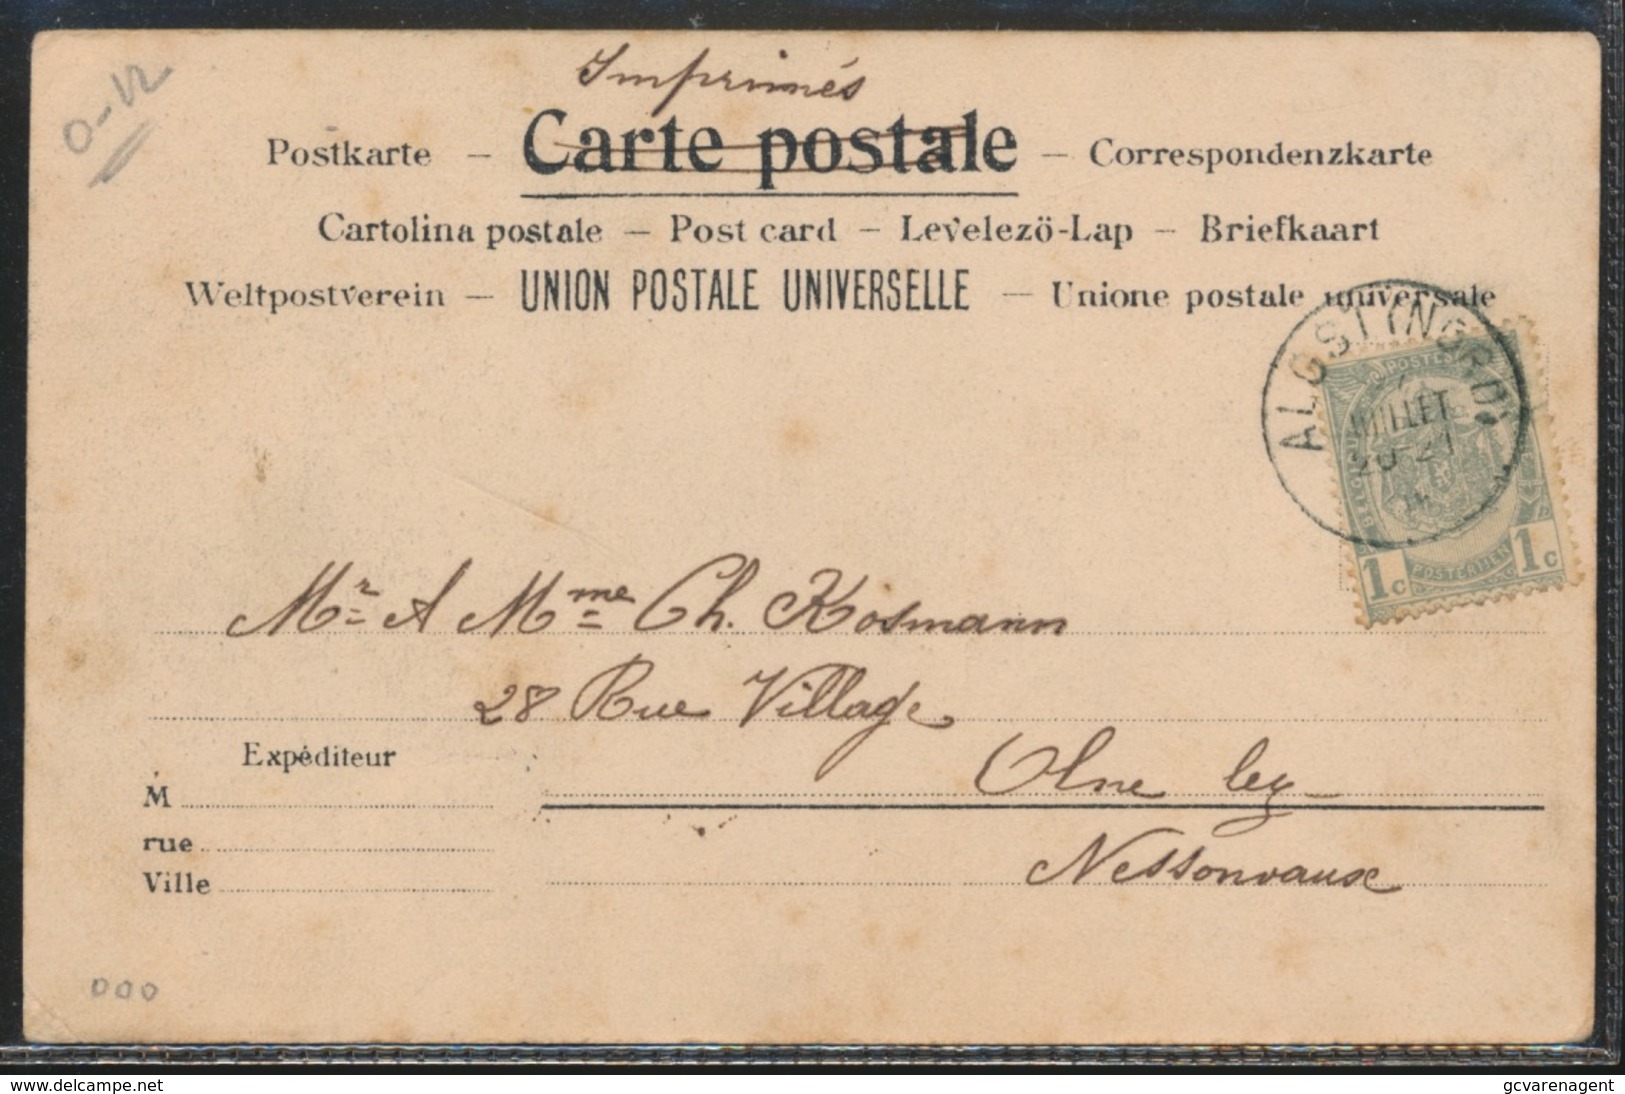 O-12
Imprimés
Postkarte – Carte postale – Correspondenzkarte
Cartolina postale – Post card – Levelezö-Lap – Briefkaart
Weltpostverein – UNION POSTALE UNIVERSELLE – Unione postale universale
JUILLET
20-21
POSTES
1c POSTERIJEN 1c
Mr & Mme Ch. Kosmann
28 Rue Village
Olne lez-
Nessonvaux
Expéditeur
M
rue
Ville
000
delcampe.net
gcvarenagent